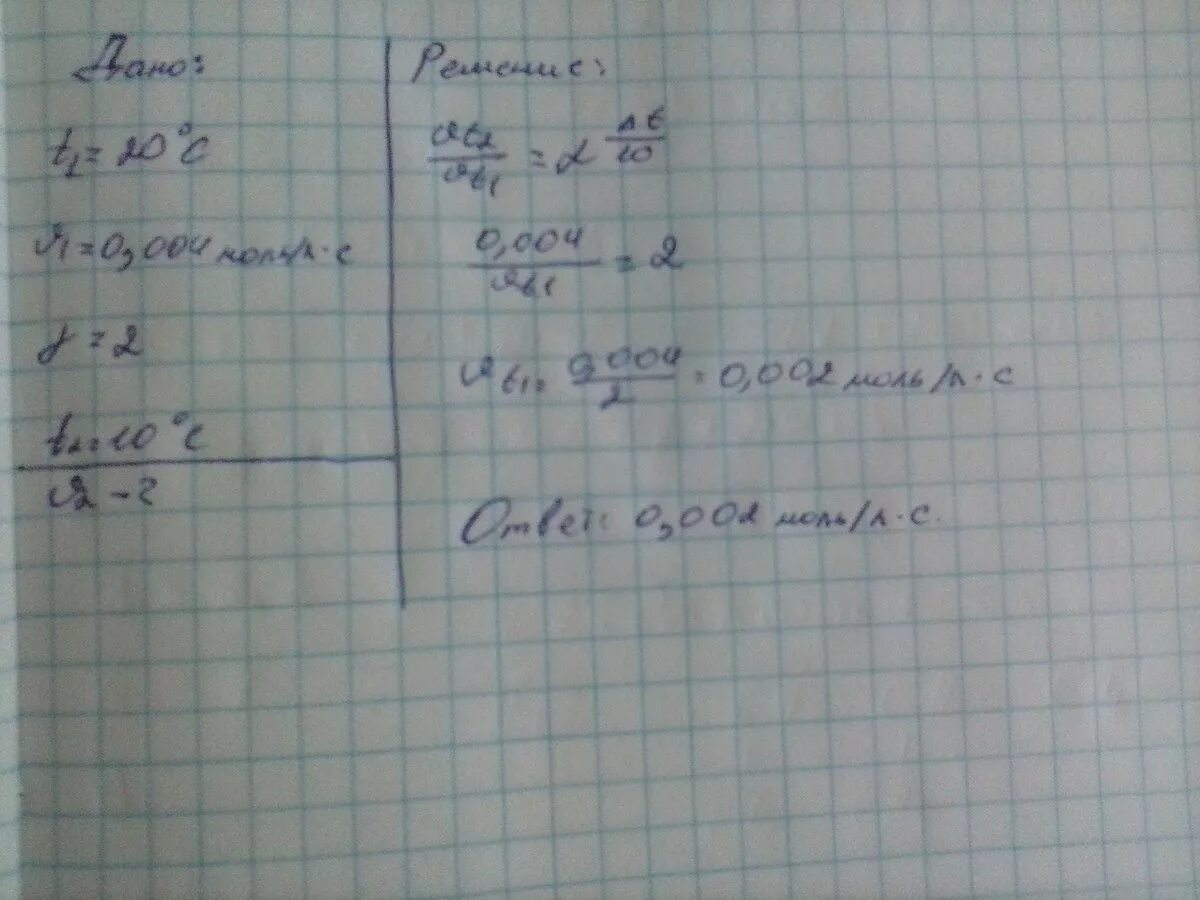 Дано:
t₁ = 20°C
υ₁ = 0,004 моль/л·с
γ = 2
t₂ = 10°C
υ₂ - ?
Решение:
υt₂/υt₁ = 2^(Δt/10)
0,004/υt₁ = 2
υt₁ = 0,004/2 = 0,002 моль/л·с
Ответ: 0,002 моль/л·с.